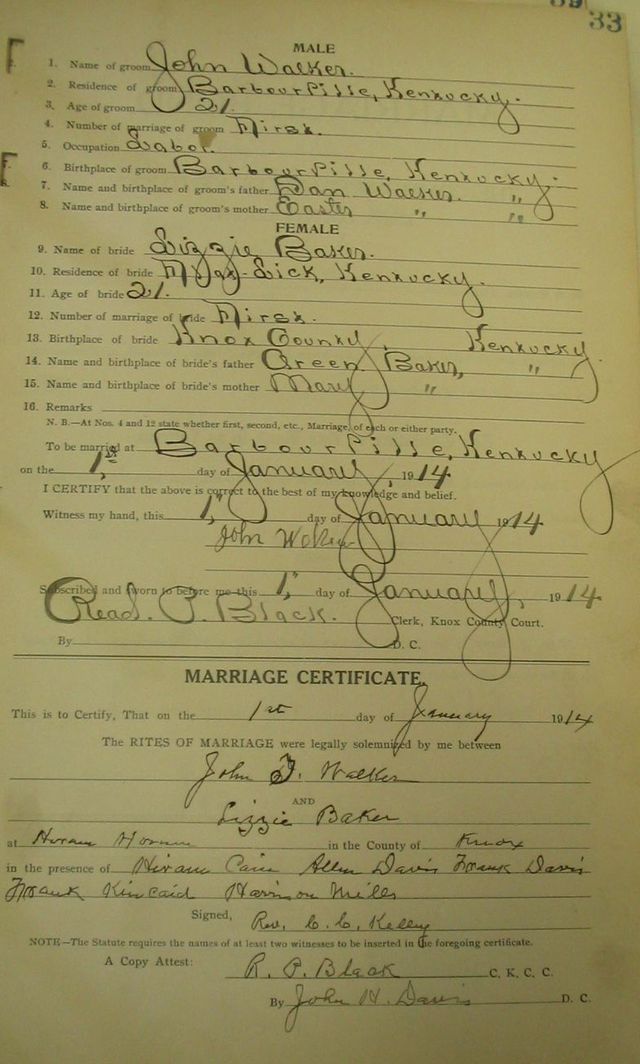 33
MALE
1. Name of groom John Walker.
2. Residence of groom Barbourville, Kentucky.
3. Age of groom 21.
4. Number of marriage of groom First.
5. Occupation Labor.
6. Birthplace of groom Barbourville, Kentucky.
7. Name and birthplace of groom's father Dan Walker. "
8. Name and birthplace of groom's mother Easter " "
FEMALE
9. Name of bride Lizzie Baker.
10. Residence of bride Lick, Kentucky.
11. Age of bride 21.
12. Number of marriage of bride First.
13. Birthplace of bride Knox County, Kentucky.
14. Name and birthplace of bride's father Green Baker, "
15. Name and birthplace of bride's mother Mary "
16. Remarks
N. B.—At Nos. 4 and 12 state whether first, second, etc., Marriage, of each or either party.
To be married at Barbourville, Kentucky
on the 1st day of January, 1914
I CERTIFY that the above is correct to the best of my knowledge and belief.
Witness my hand, this 1" day of January 1914
John Walker
Subscribed and sworn to before me this 1" day of January, 1914
Read. P. Black. Clerk, Knox County Court.
By D. C.
MARRIAGE CERTIFICATE.
This is to Certify, That on the 1st day of January 1914
The RITES OF MARRIAGE were legally solemnized by me between
John F. Walker
AND
Lizzie Baker
at in the County of Knox
in the presence of Hiram Cain Allen Davis Frank Davis
Frank Kincaid Harrison Mills
Signed, Rev. C. C. Kelley
NOTE—The Statute requires the names of at least two witnesses to be inserted in the foregoing certificate.
A Copy Attest: R. P. Black C. K. C. C.
By John H. Davis D. C.